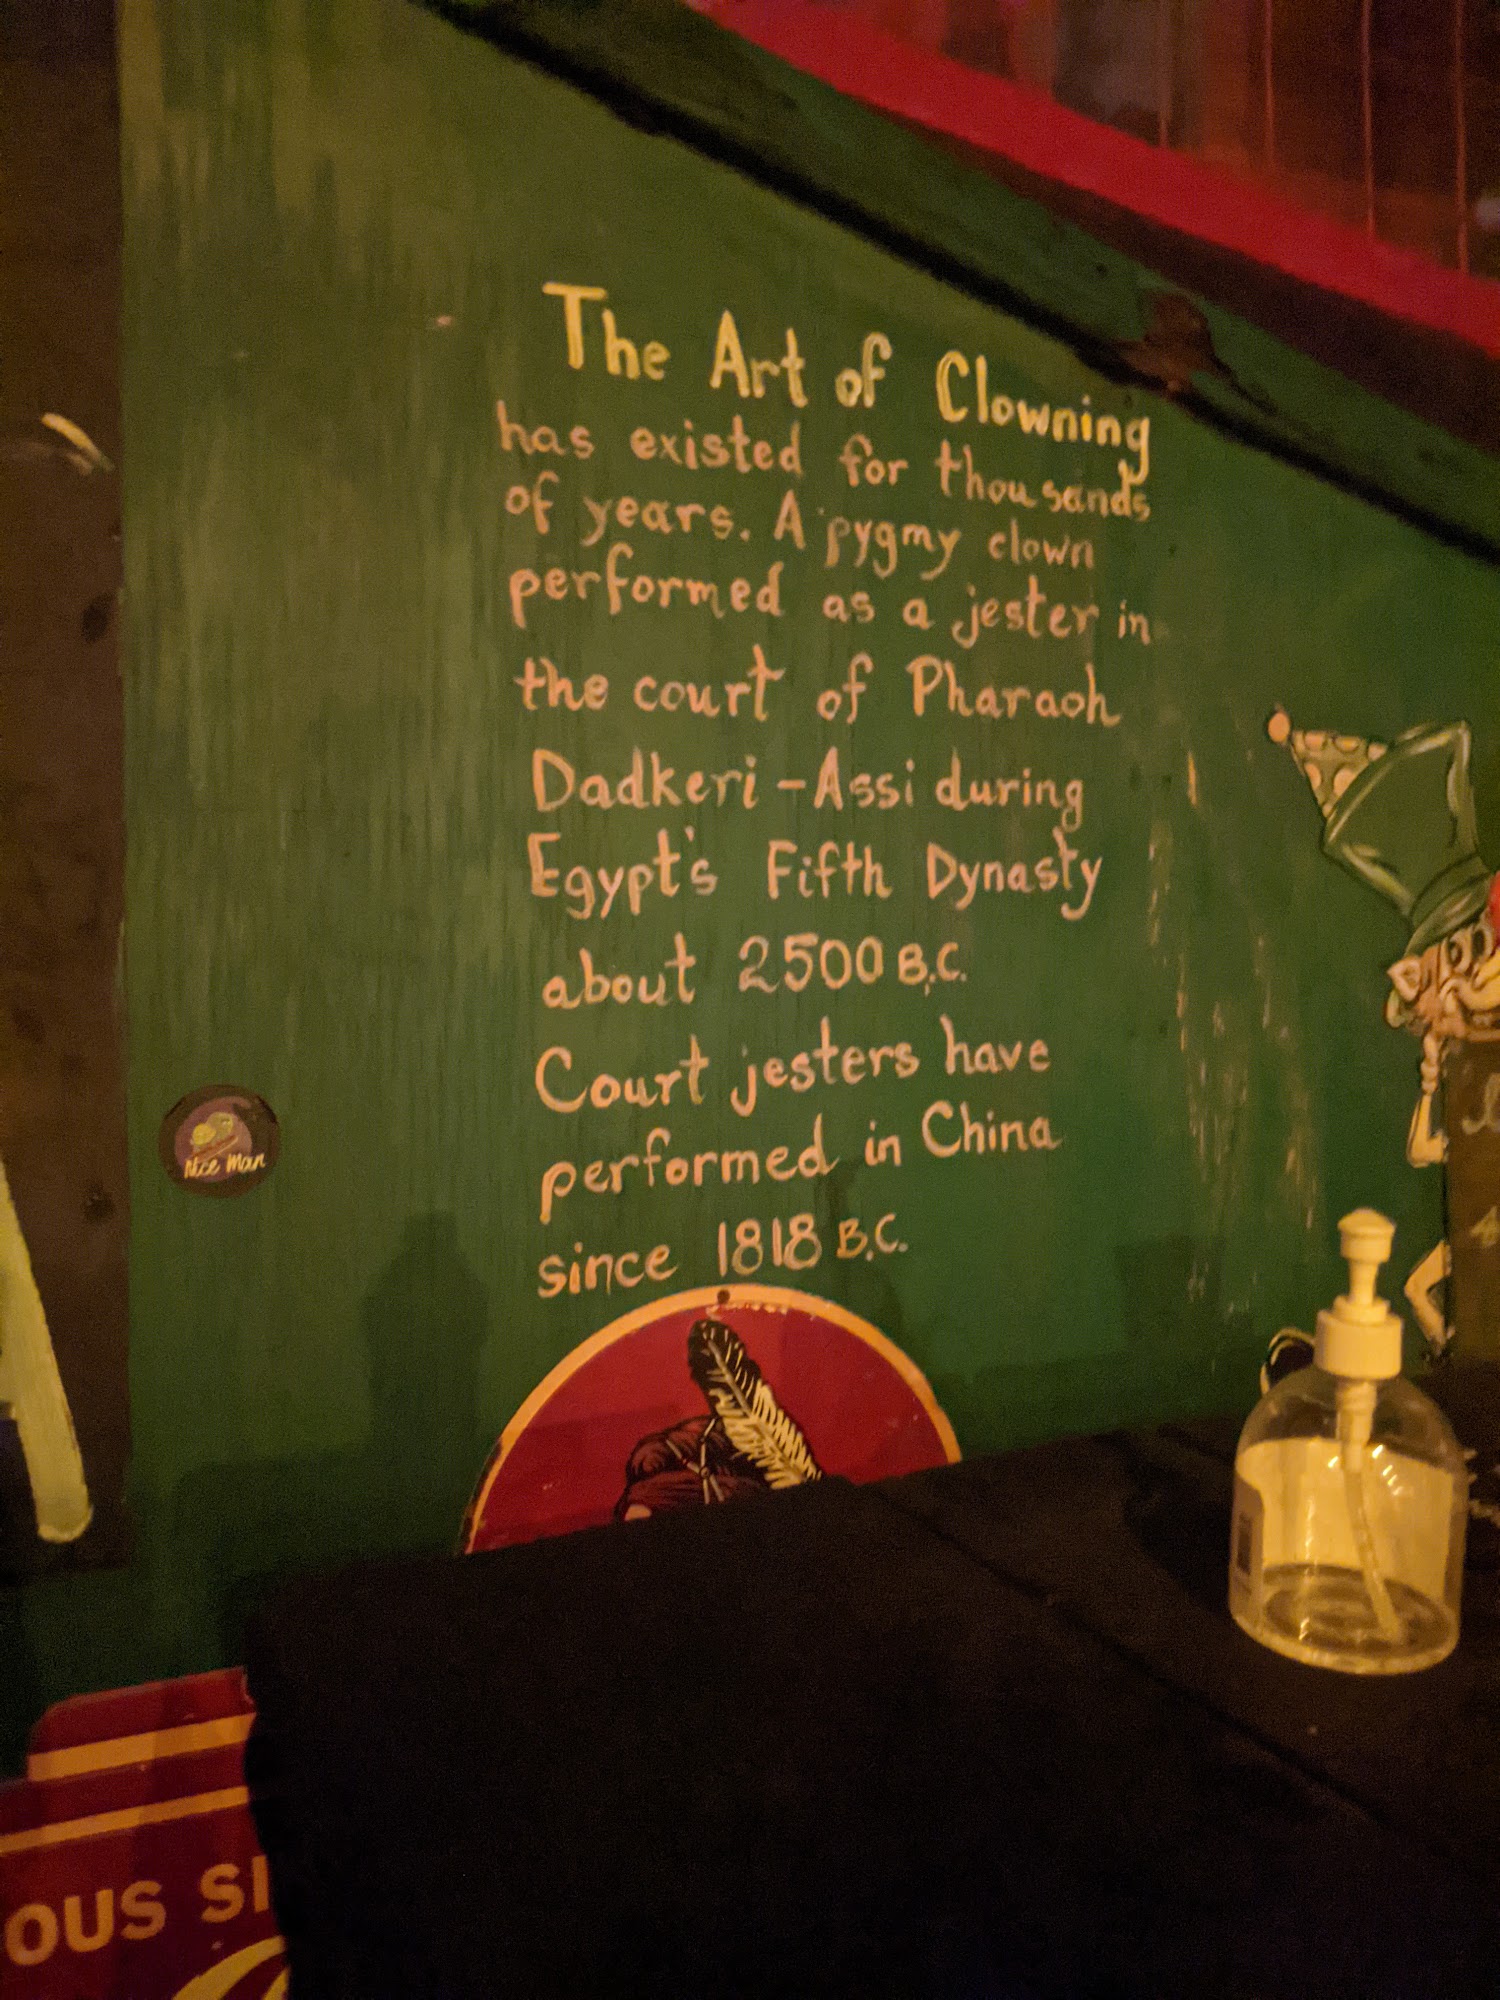 The Art of Clowning
has existed for thousands
of years. A pygmy clown
performed as a jester in
the court of Pharaoh
Dadkeri-Assi during
Egypt's Fifth Dynasty
about 2500 B.C.
Court jesters have
performed in China
since 1818 B.C.
Nice Man
OUS SI